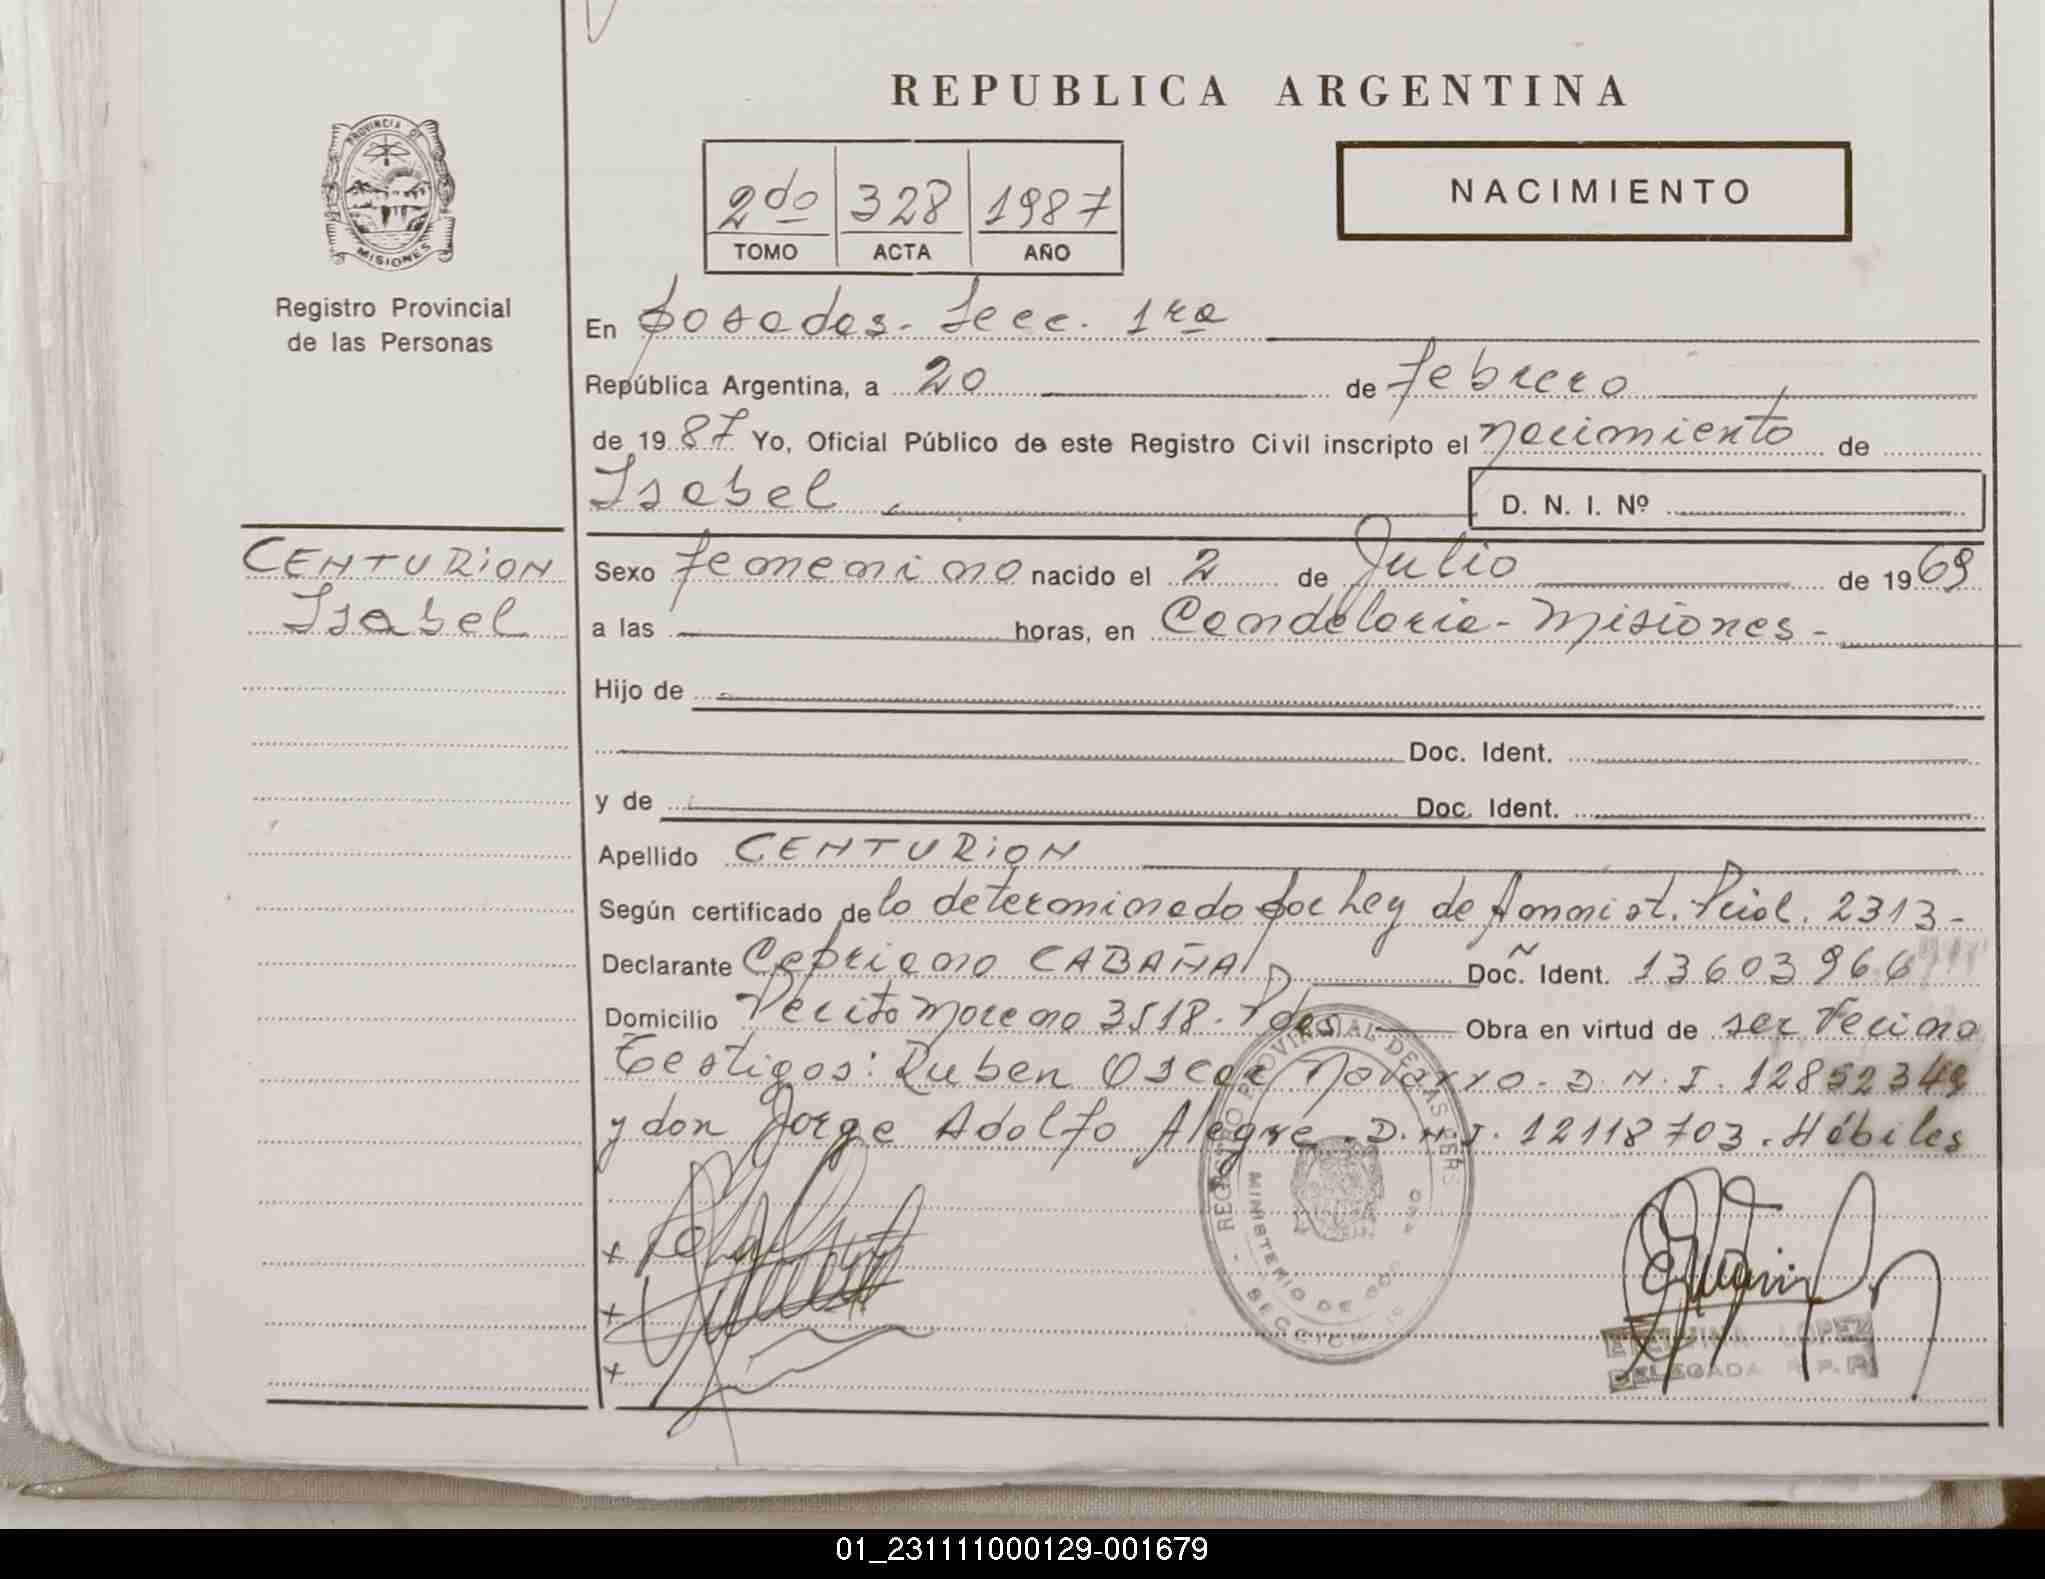 REPUBLICA ARGENTINA
PROVINCIA DE
MISIONES
Registro Provincial
de las Personas
2do 328 1987
TOMO ACTA AÑO
NACIMIENTO
En Posadas. Secc. 1ra
República Argentina, a 20 de febrero
de 1987 Yo, Oficial Público de este Registro Civil inscripto el nacimiento de
Isabel
D. N. I. Nº
CENTURION
Isabel
Sexo femenino nacido el 2 de Julio de 1969
a las horas, en Candelaria - Misiones -
Hijo de
Doc. Ident.
y de Doc. Ident.
Apellido CENTURION
Según certificado de lo determinado por Ley de Amnist. 2313-
Declarante Cepriano CABAÑA Doc. Ident. 13603966
Domicilio Perito Moreno 3518 - Pdas Obra en virtud de ser Vecino
Testigos: Ruben Oscar Navarro. D.N.I. 12852349
y don Jorge Adolfo Alegre. D.N.I. 12118703. Hábiles
REGISTRO PROVINCIAL DE LAS PERS
MINISTERIO DE GOB
SECCION 1a
x
x
x
LOPEZ
DELEGADA R. P. P.
01_231111000129-001679